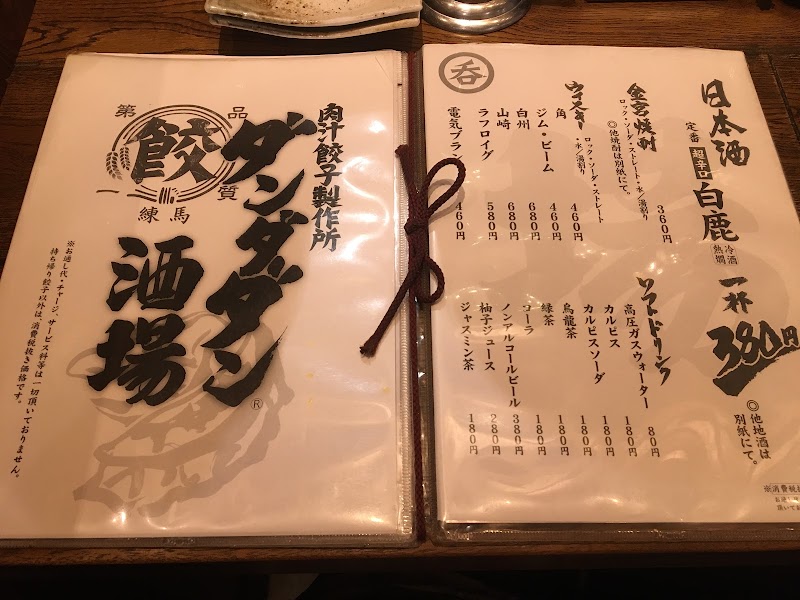 肉汁餃子製作所
ダンダダン
酒場
®
第一品質
餃
練馬
※お通し代・チャージ、サービス料等は一切頂いておりません。
持ち帰り餃子以外は、消費税抜き価格です。
呑
日本酒
定番 超辛口 白鹿 冷酒 熱燗 一杯 380円
◎他地酒は
別紙にて。
※消費税抜
金宮焼酎
ロック・ソーダ・ストレート・水/湯割り 360円
◎他焼酎は別紙にて。
ウイスキー
ロック・ソーダ・ストレート
・水/湯割り
角 460円
ジム・ビーム 460円
白州 680円
山崎 680円
ラフロイグ 580円
電気ブラン 460円
ソフトドリンク
高圧ガスウォーター 80円
カルピス 180円
カルピスソーダ 180円
烏龍茶 180円
緑茶 180円
コーラ 180円
ノンアルコールビール 380円
柚子ジュース 280円
ジャスミン茶 180円